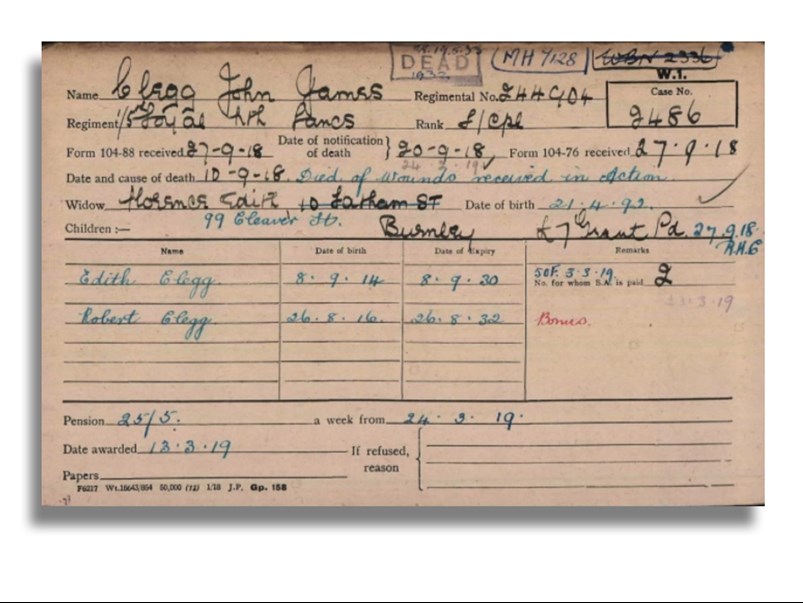 DEAD
1933
MH 7128
WBN 2336
W.I.
Name Clegg John James Regimental No. 244904 Case No.
2486
Regiment 1/5 Loyal Nth Lancs Rank L/Cpl
Form 104-88 received 27-9-18 Date of notification of death } 20-9-18 Form 104-76 received 27.9.18
24 3 19
Date and cause of death 10-9-18. Died of wounds received in Action.
Widow Florence Edith 10 Latham St Date of birth 21.4.92.
99 Cleaver St. Burnley
Children :— £7 Grant Pd. 27.9.18.
Name Date of birth Date of Expiry Remarks
Edith Clegg. 8.9.14 8.9.30 S.O.F. 3-3-19.
No. for whom S.A. is paid 2
3.19
Robert Clegg. 26.8.16. 26.8.32 Bonus.
Pension 25/5. a week from 24.3.19.
Date awarded 13.3.19 If refused,
reason
Papers
F6217 Wt.15643/854 50,000 (12) 1/18 J.P. Gp. 158